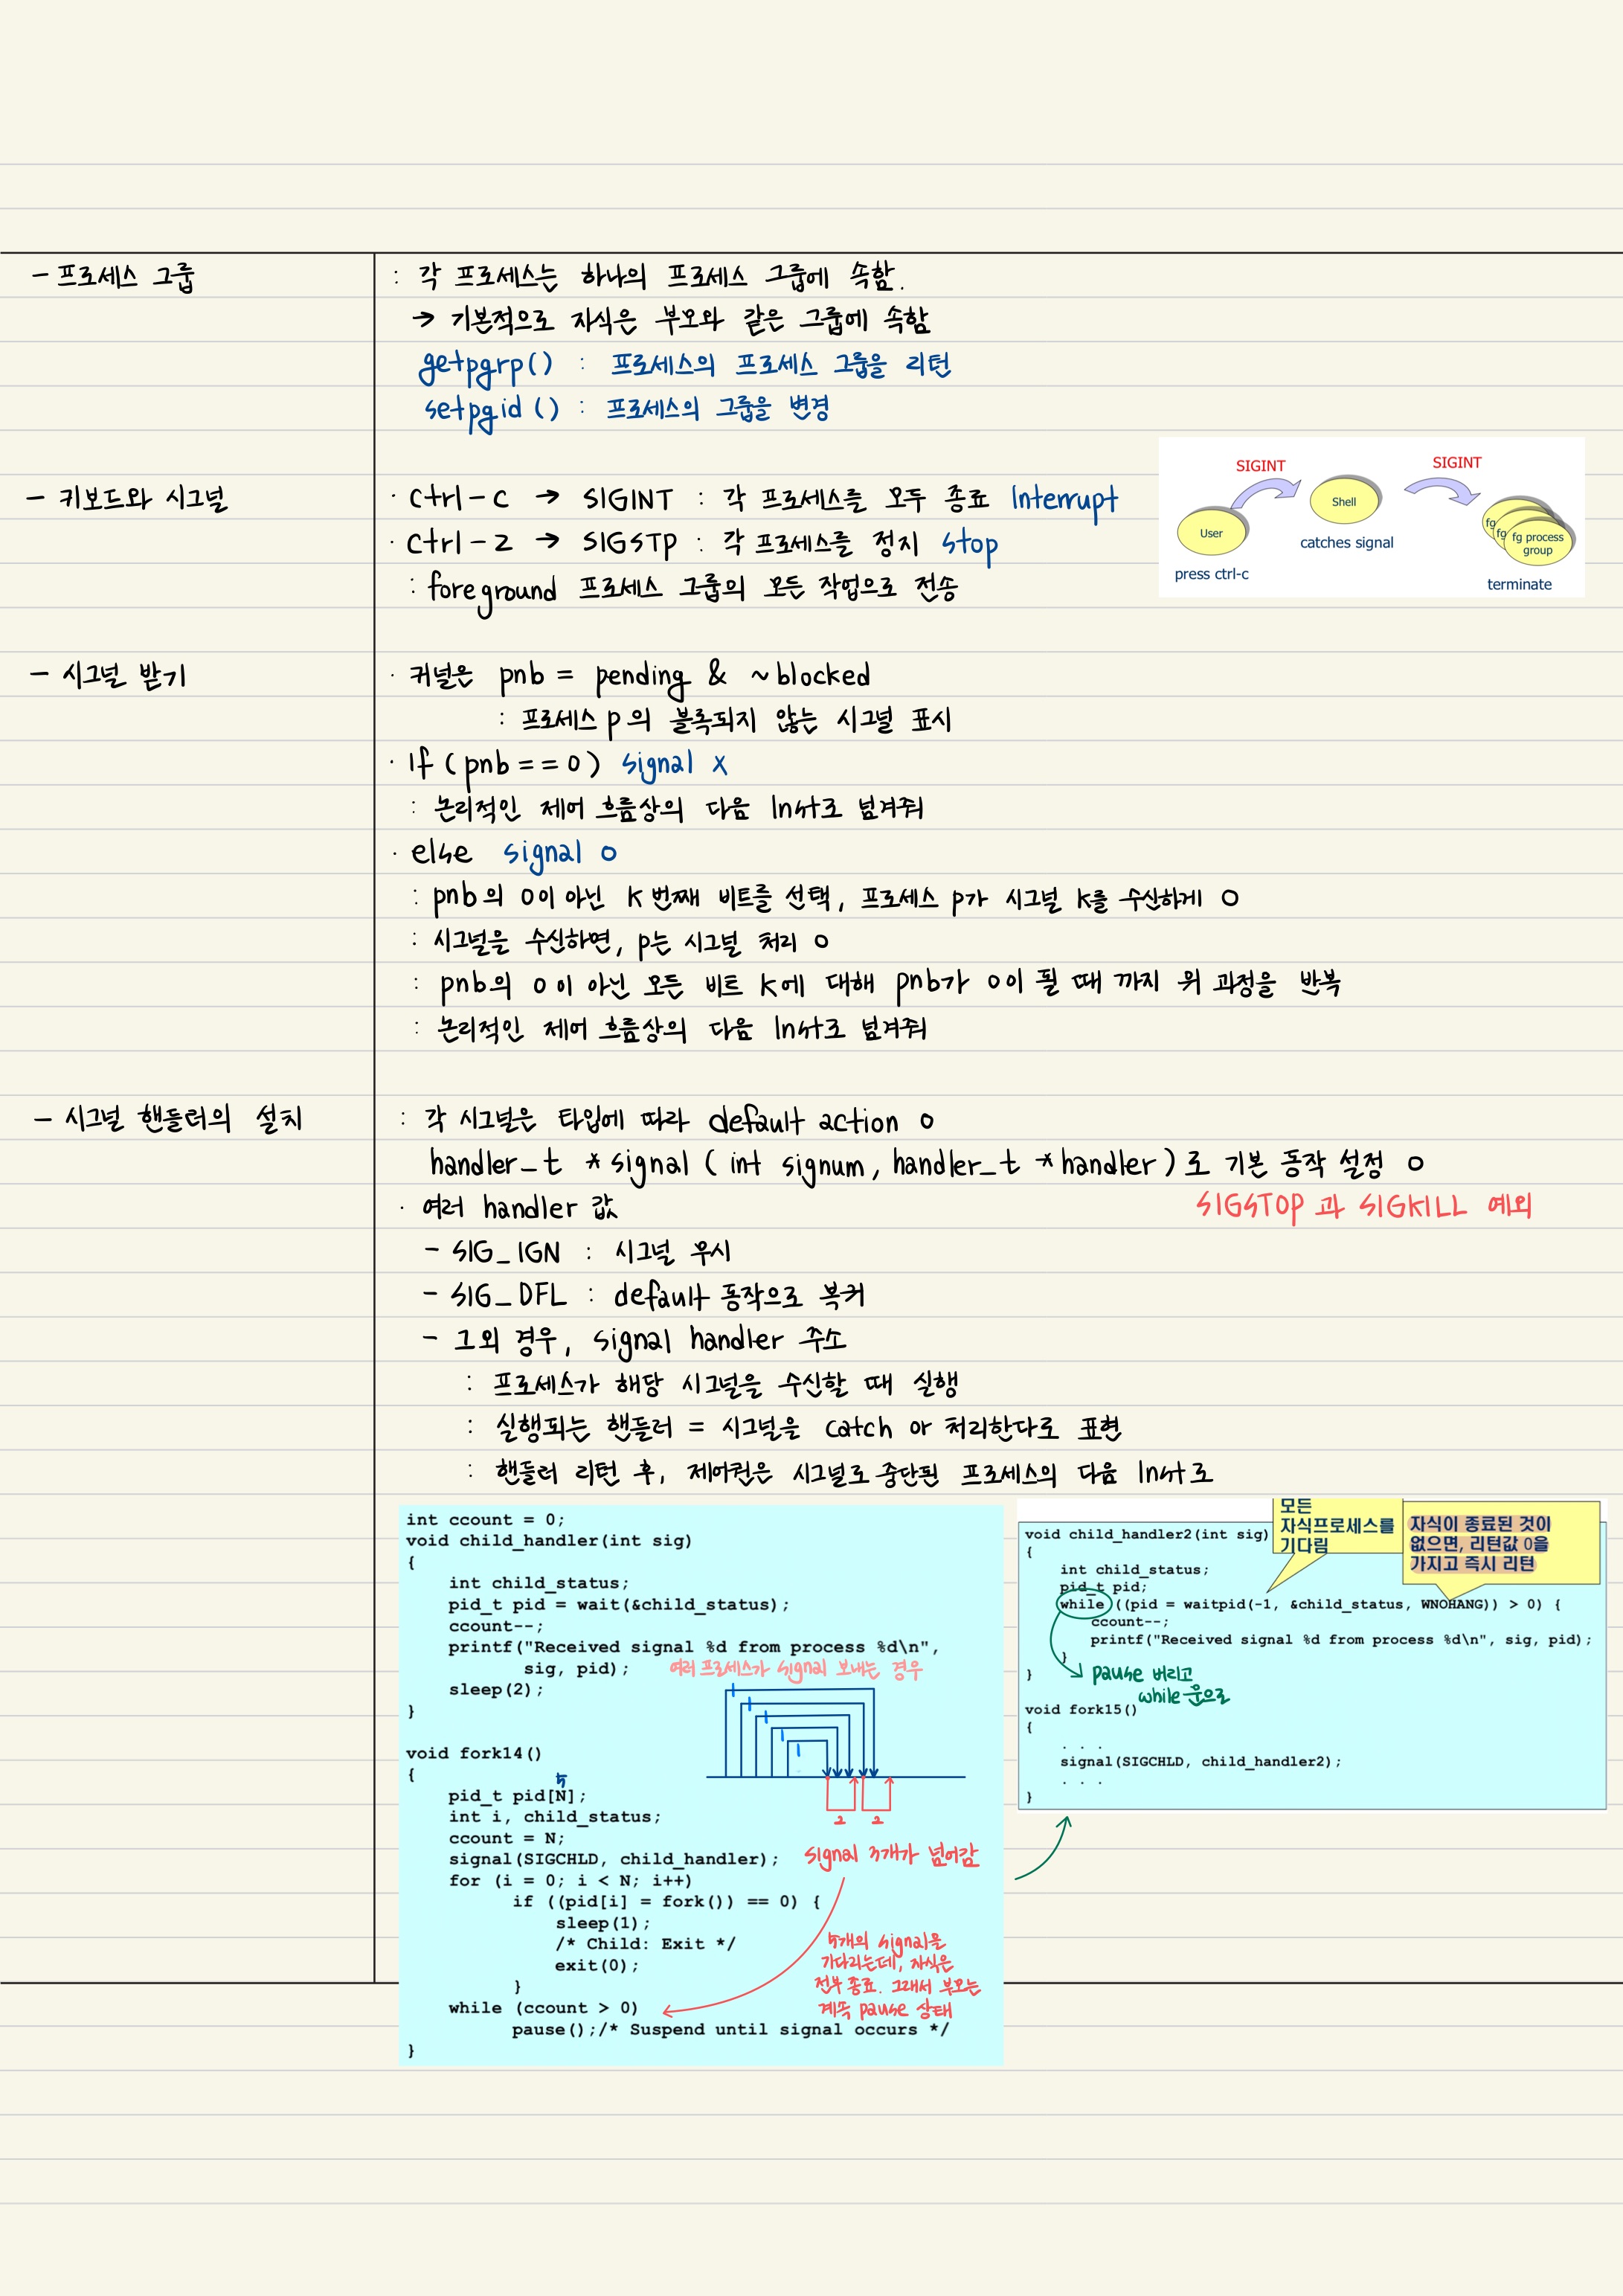 - 프로세스 그룹
: 각 프로세스는 하나의 프로세스 그룹에 속함.
→ 기본적으로 자식은 부모와 같은 그룹에 속함
getpgrp() : 프로세스의 프로세스 그룹을 리턴
setpgid() : 프로세스의 그룹을 변경
- 키보드와 시그널
· ctrl-c → SIGINT : 각 프로세스를 모두 종료 Interrupt
· ctrl-z → SIGSTP : 각 프로세스를 정지 stop
: foreground 프로세스 그룹의 모든 작업으로 전송
SIGINT
SIGINT
User
Shell
fg
fg
fg process
group
press ctrl-c
catches signal
terminate
- 시그널 받기
· 커널은 pnb = pending & ~blocked
: 프로세스 p의 블록되지 않는 시그널 표시
· If (pnb==0) signal x
: 논리적인 제어 흐름상의 다음 Inst로 넘겨줘
· else signal o
: pnb의 0이 아닌 K번째 비트를 선택, 프로세스 p가 시그널 k를 수신하게 o
: 시그널을 수신하면, p는 시그널 처리 o
: pnb의 0이 아닌 모든 비트 K에 대해 pnb가 0이 될 때 까지 위 과정을 반복
: 논리적인 제어 흐름상의 다음 Inst로 넘겨줘
- 시그널 핸들러의 설치
: 각 시그널은 타입에 따라 default action o
handler_t *signal (int signum, handler_t *handler)로 기본 동작 설정 o
· 여러 handler 값
SIGSTOP 과 SIGKILL 예외
- SIG_IGN : 시그널 무시
- SIG_DFL : default 동작으로 복귀
- 그외 경우, signal handler 주소
: 프로세스가 해당 시그널을 수신할 때 실행
: 실행되는 핸들러 = 시그널을 catch or 처리한다로 표현
: 핸들러 리턴 후, 제어권은 시그널로 중단된 프로세스의 다음 Inst로
int ccount = 0;
void child_handler(int sig)
{
int child_status;
pid_t pid = wait(&child_status);
ccount--;
printf("Received signal %d from process %d\n",
sig, pid);
여러 프로세스가 signal 보내는 경우
sleep(2);
}
1
1
1
1
1
2
2
signal 3개가 넘어감
void fork14()
{
5
pid_t pid[N];
int i, child_status;
ccount = N;
signal(SIGCHLD, child_handler);
for (i = 0; i < N; i++)
if ((pid[i] = fork()) == 0) {
sleep(1);
/* Child: Exit */
exit(0);
}
while (ccount > 0)
pause();/* Suspend until signal occurs */
}
5개의 signal을
기다리는데, 자식은
전부 종료. 그래서 부모는
계속 pause 상태
모든
자식프로세스를
기다림
자식이 종료된 것이
없으면, 리턴값 0을
가지고 즉시 리턴
void child_handler2(int sig)
{
int child_status;
pid_t pid;
while ((pid = waitpid(-1, &child_status, WNOHANG)) > 0) {
ccount--;
printf("Received signal %d from process %d\n", sig, pid);
}
}
pause 버리고
while 문으로
void fork15()
{
. . .
signal(SIGCHLD, child_handler2);
. . .
}